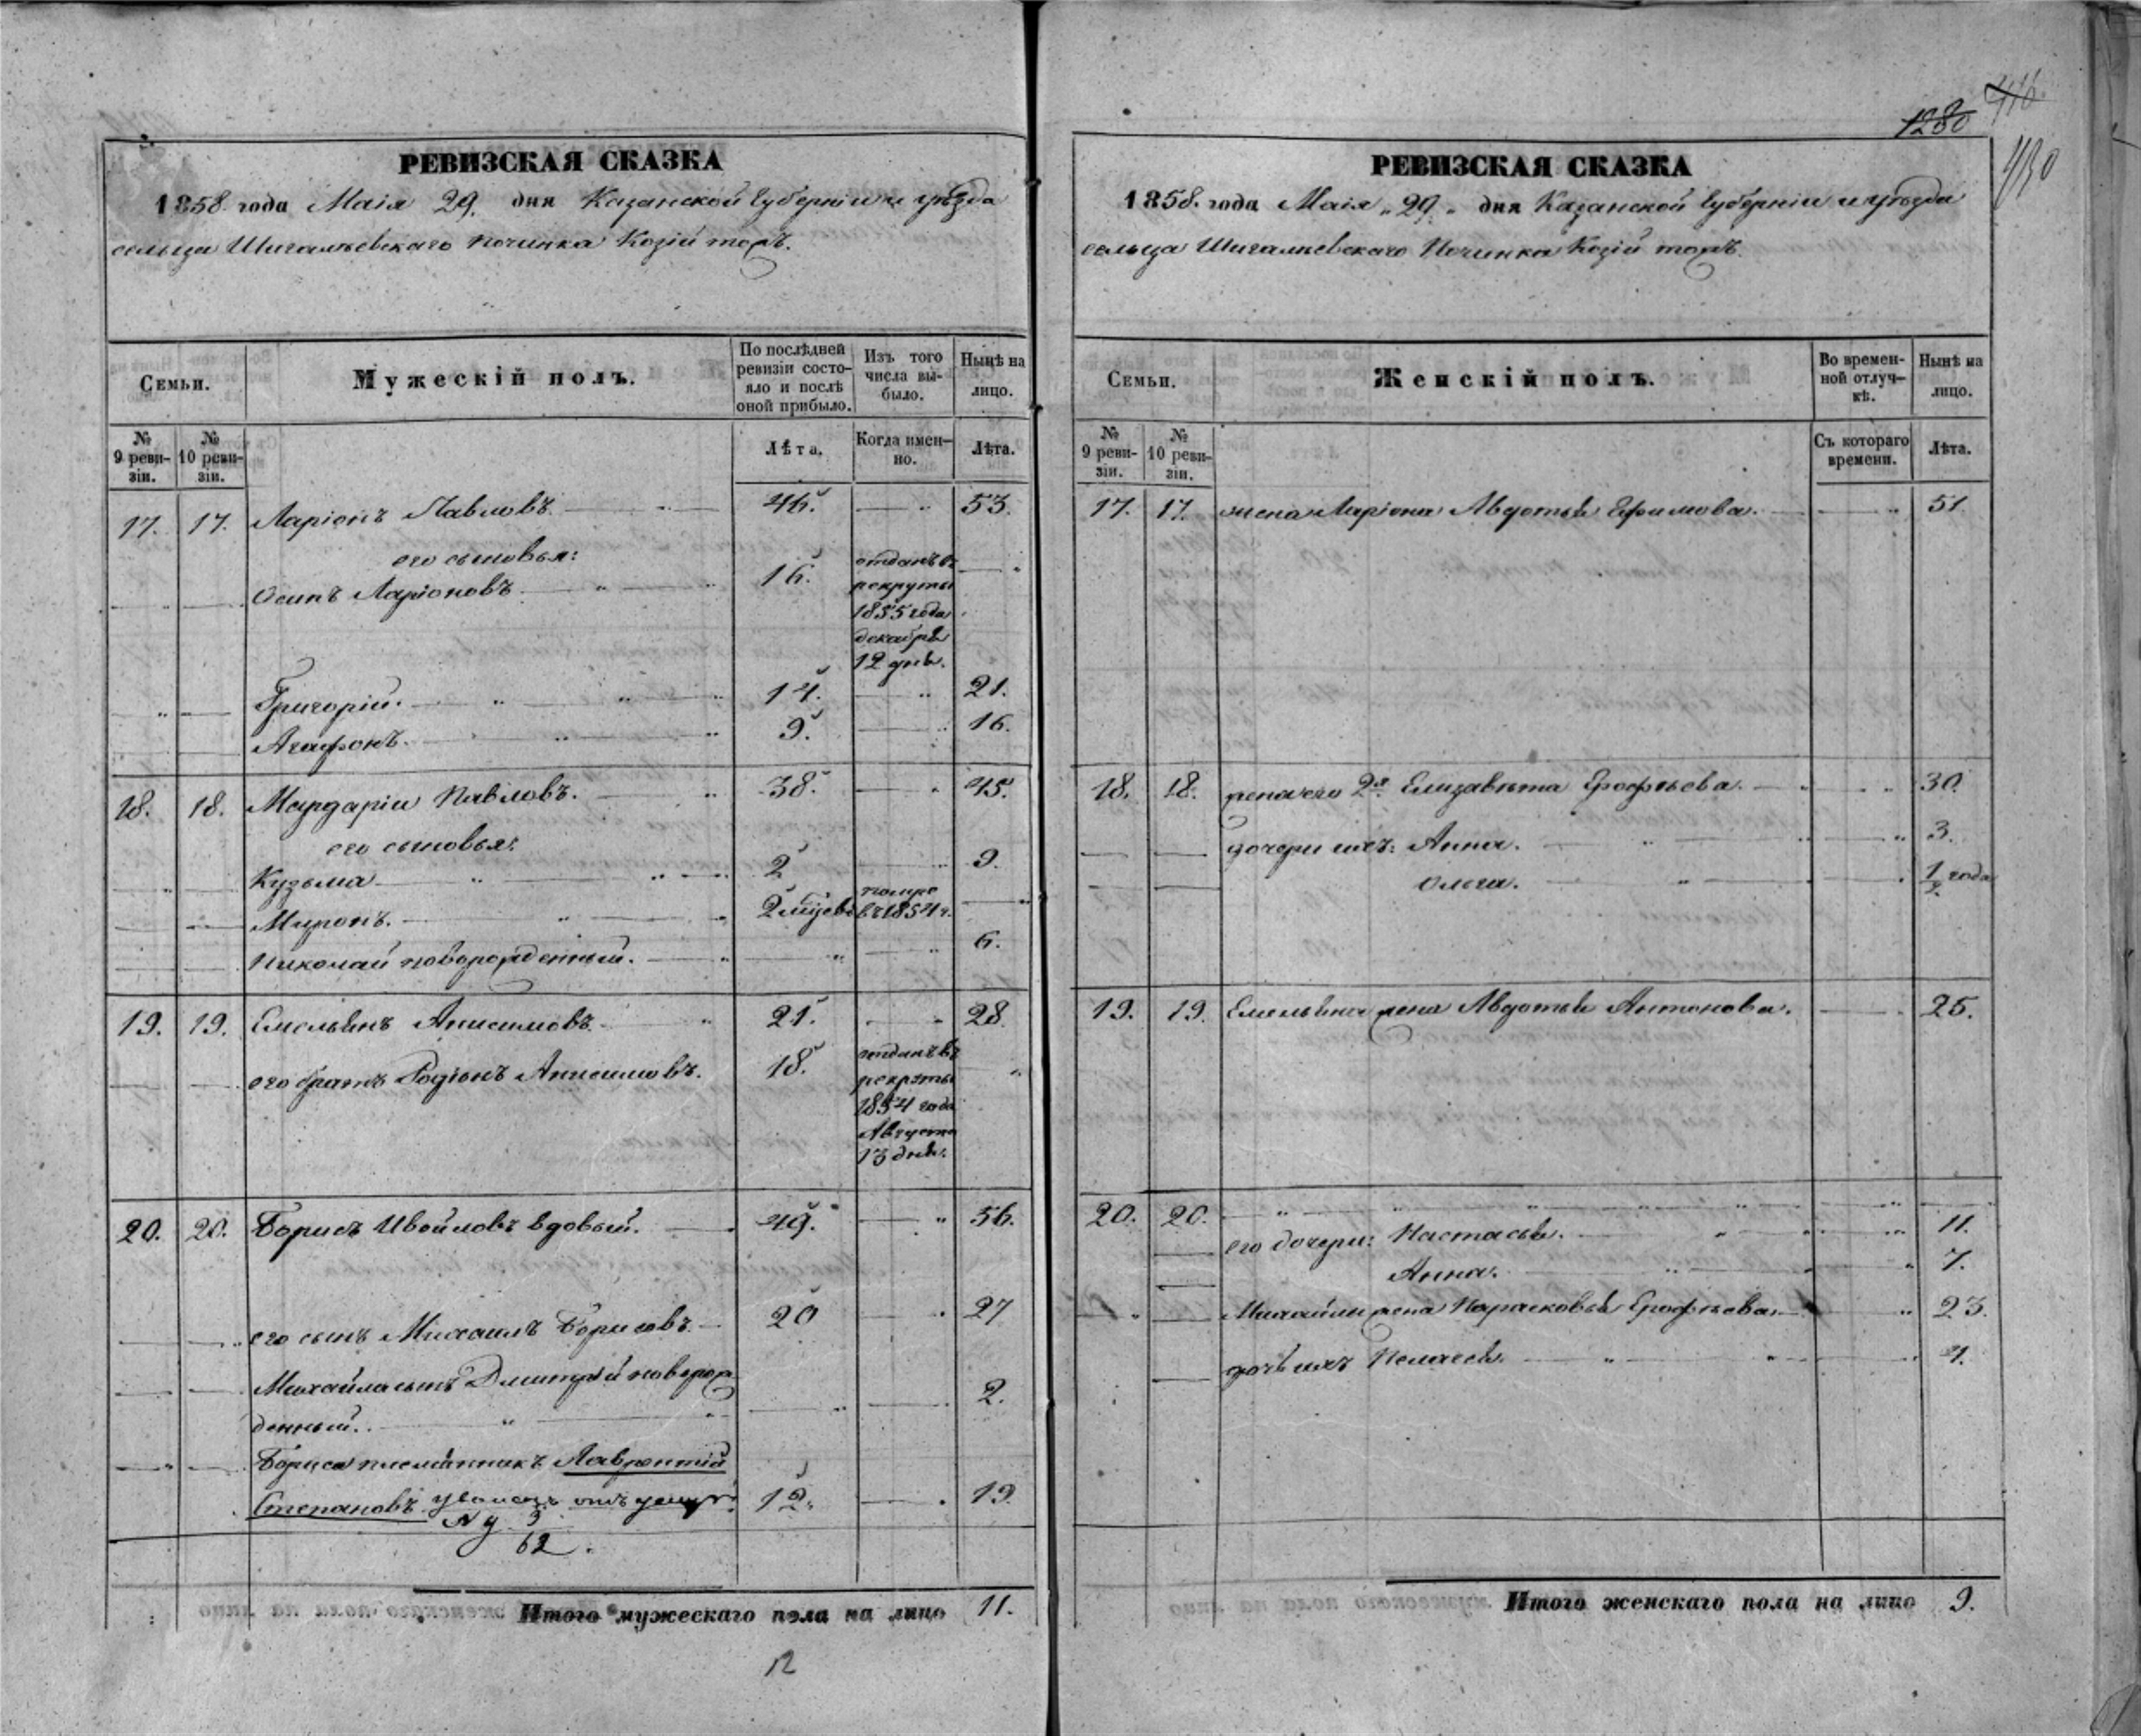 РЕВИЗСКАЯ СКАЗКА
1858. года Маія 29. дня Казанской Губерніи и уѣзда
сельца Шигалѣевскаго починка Козій тожъ.
Семьи.
Мужескій полъ.
По послѣдней ревизіи состояло и послѣ оной прибыло.
Изъ того числа выбыло.
Нынѣ на лицо.
№ 9 реви-зіи.
№ 10 реви-зіи.
Лѣта.
Когда имен-но.
Лѣта.
17. 17. Ларіонъ Павловъ 46. 53.
его сыновья:
Осипъ Ларіоновъ 16. отданъ въ
рекруты
1855 года
декабря
12 дня.
Григорій. 14. 21.
Агафонъ. 9. 16.
18. 18. Мардарій Павловъ. 38. 45.
его сыновья:
Кузьма 2 9.
Миронъ. 2 помре
въ 1854 г.
Николай новорожденный. 6.
19. 19. Емельянъ Анисимовъ 21. 28
его братъ Родіонъ Анисимовъ. 18. отданъ въ
рекруты
1854 года
Августа
13 дня.
20. 20. Борисъ Ивойловъ вдовый. 49. 56.
его сынъ Михаилъ Борисовъ 20 27
Михайла сынъ Дмитрій новорож
денный. 2.
Бориса племянникъ Лаврентій
Степановъ 12. 19.
3
62.
Итого мужескаго пола на лицо 11.
12
1280
416.
430
РЕВИЗСКАЯ СКАЗКА
1858. года Маія "29" дня Казанской Губерніи и уѣзда
сельца Шигалѣевскаго Починка Козій тожъ.
Семьи.
Женскій полъ.
Во времен-ной отлуч-кѣ.
Нынѣ на лицо.
№ 9 реви-зіи.
№ 10 реви-зіи.
Съ котораго времени.
Лѣта.
17. 17. жена Ларіона Авдотья Ефимова. 51.
18. 18. жена его 2я Елизавѣта Ерофѣева 30.
дочери ихъ: Анна. 3.
Ольга. 1/2 года
19. 19. Емельяна жена Авдотья Антонова. 25.
20. 20.
его дочери: Настасья. 11.
Анна. 7.
Михайлы жена Парасковья Ерофѣева. 23.
дочь ихъ Пелагея 4.
Итого женскаго пола на лицо 9.